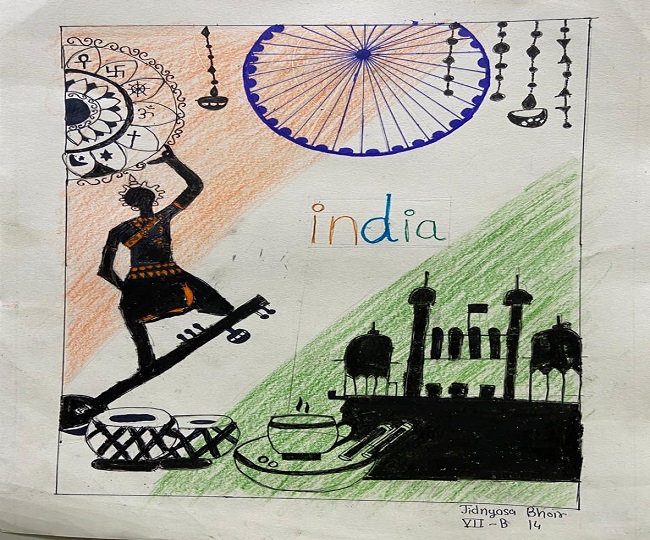 india
Jidnyasa Bhoir
VII - B 14